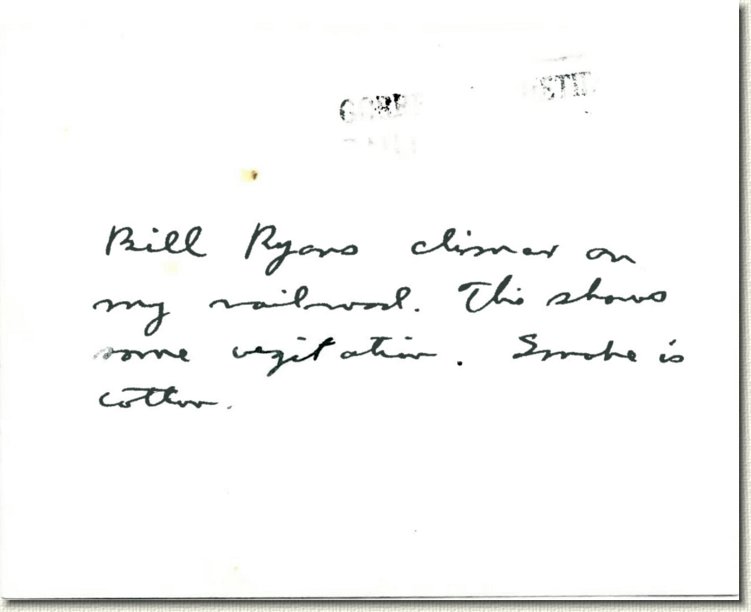 Bill Ryans climax on
my railroad. This shows
some vegitation. Smoke is
cotton.